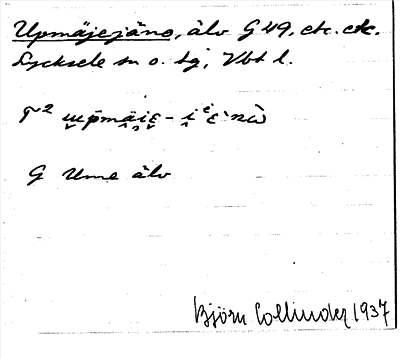 Upmäjejäno, älv G 49, etc. etc.
Lycksele sn o. tg, Vbt l.
G Ume älv
Björn Collinder 1937